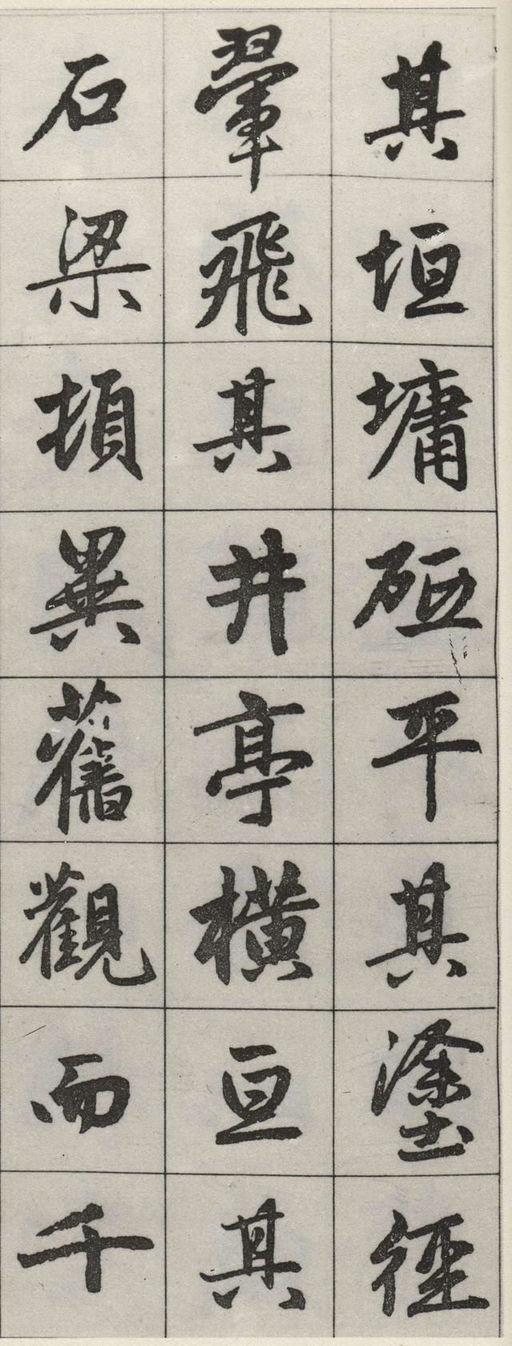 其垣墉砥平其塗徑
翬飛其井亭橫亘其
石梁頓異舊觀而千